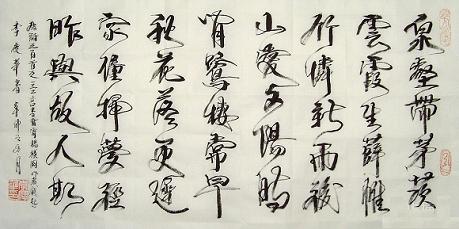 泉壑帶茅茨
雲霞生薜帷
竹憐新雨後
山愛夕陽時
閒鷺棲常早
秋花落更遲
家僮掃蘿徑
昨與故人期